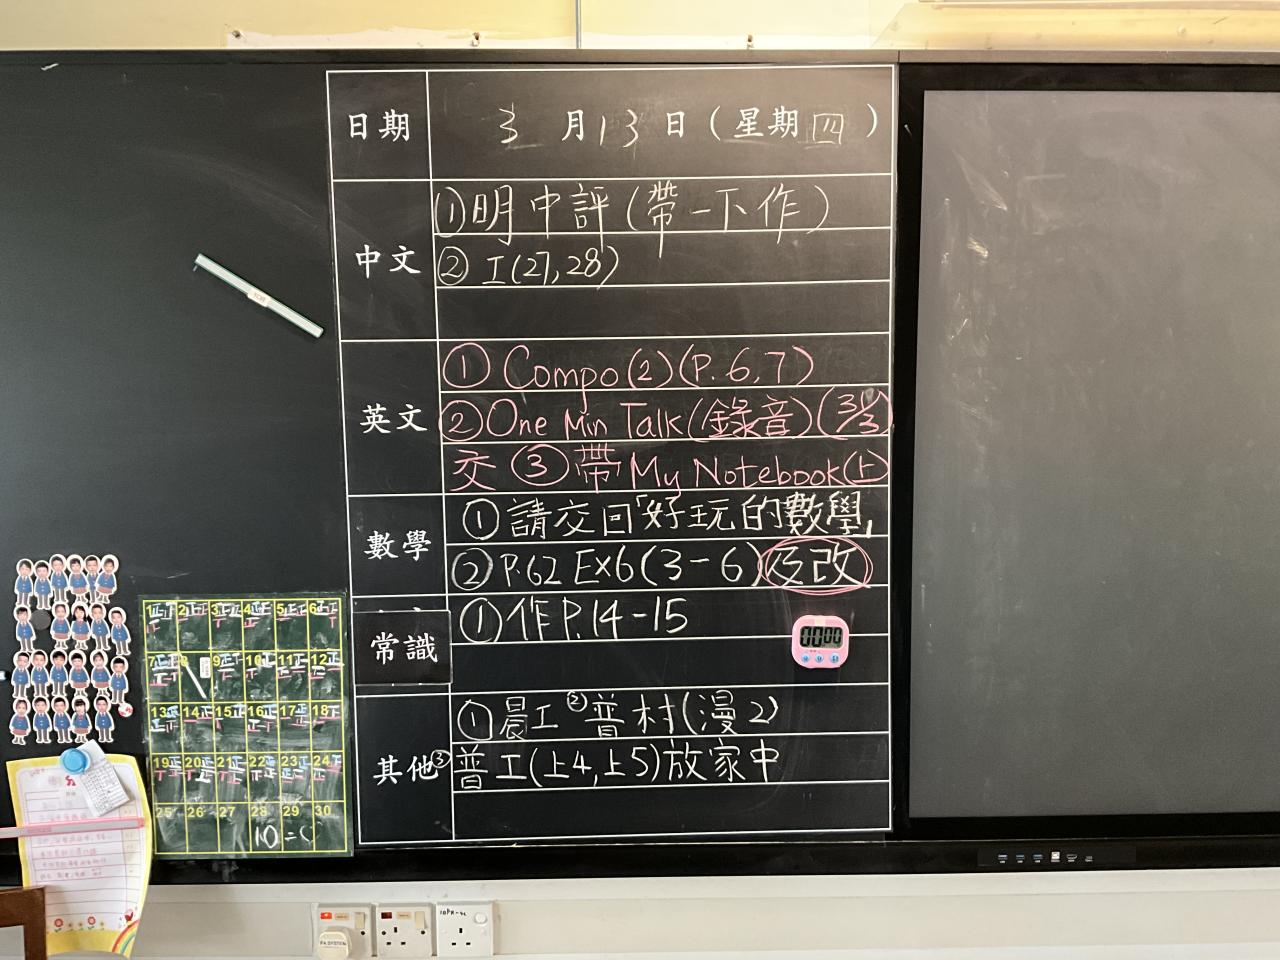 日期 3 月 13 日 ( 星期 四 )
中文
①明中評(帶一下作)
② 工(27,28)
英文
① Compo(2)(P.6,7)
② One Min Talk(錄音)(31/3)
交 ③ 帶 My Notebook(上)
數學
① 請交回「好玩的數學」
② P.62 Ex6(3-6)及改
常識
① 作 P.14-15
00:00
其他
① 晨工 ② 普村(漫2)
③ 普工(上4,上5)放家中
1 2 3 4 5 6
7 8 9 10 11 12
13 14 15 16 17 18
19 20 21 22 23 24
25 26 27 28 29 30